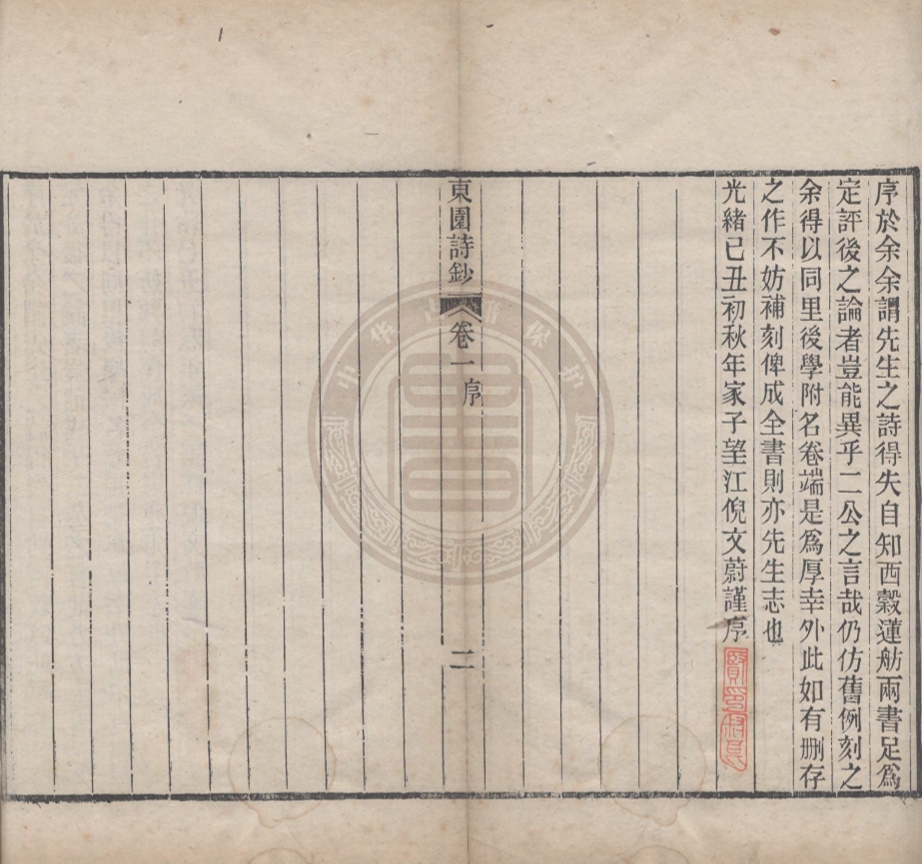 序於余余謂先生之詩得失自知西穀蓮舫兩書足爲
定評後之論者豈能異乎二公之言哉仍仿舊例刻之
余得以同里後學附名卷端是爲厚幸外此如有刪存
之作不妨補刻俾成全書則亦先生志也
光緒已丑初秋年家子望江倪文蔚謹序
東園詩鈔 卷一序 二
中华古籍保护